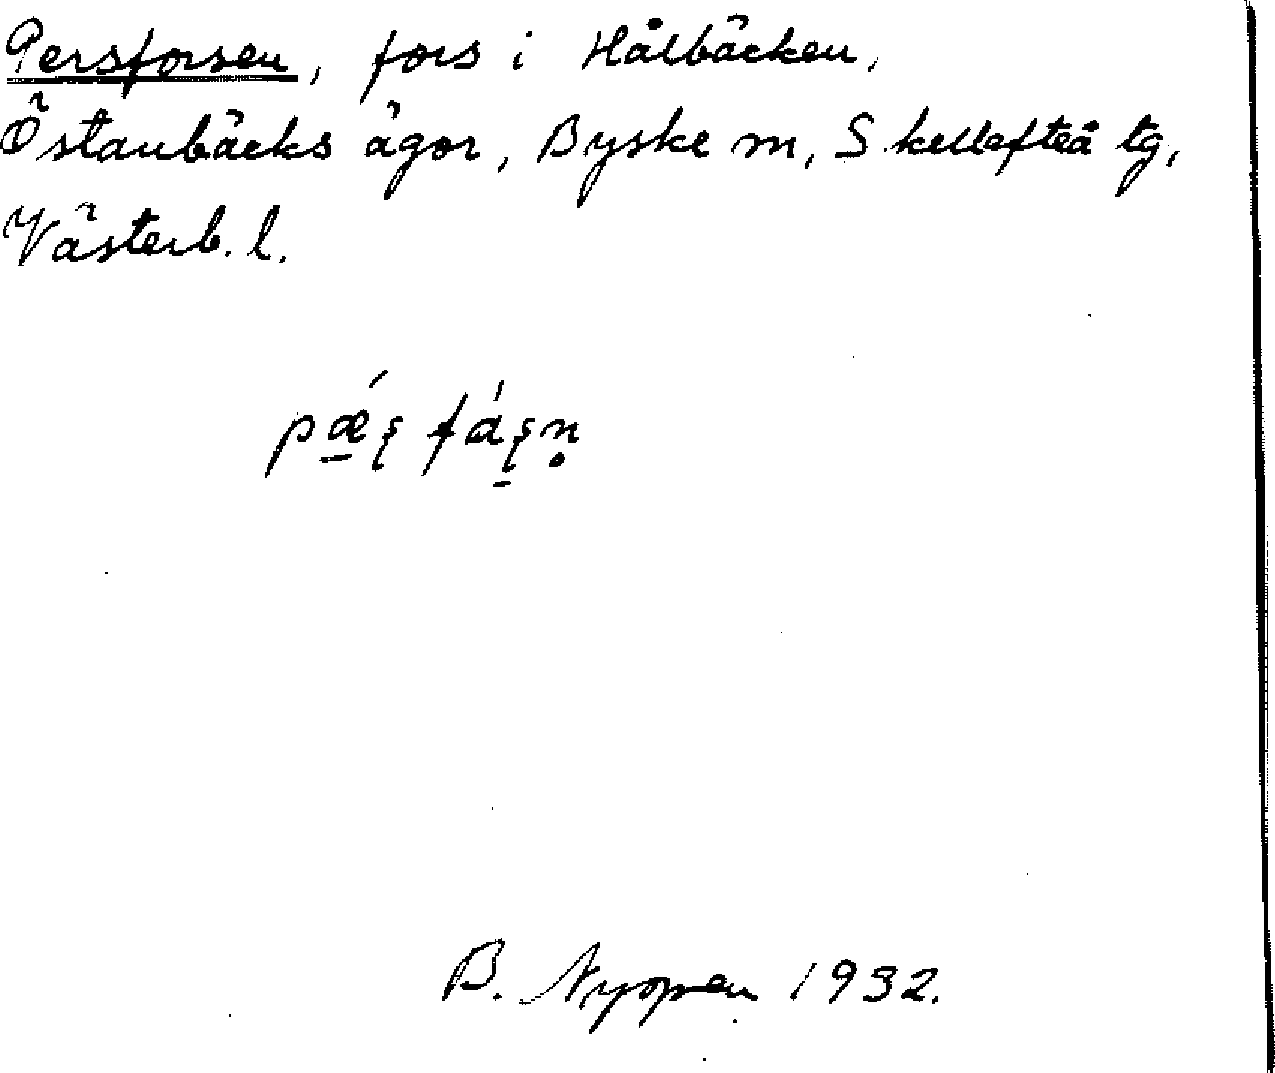 Persforsen, fors i Hålbäcken,
Östanbäcks ägor, Byske m, Skellefteå tg,
Västerb. l.
pǽ̠ʂ fáʂ̠ṇ
B. Nyopen 1932.